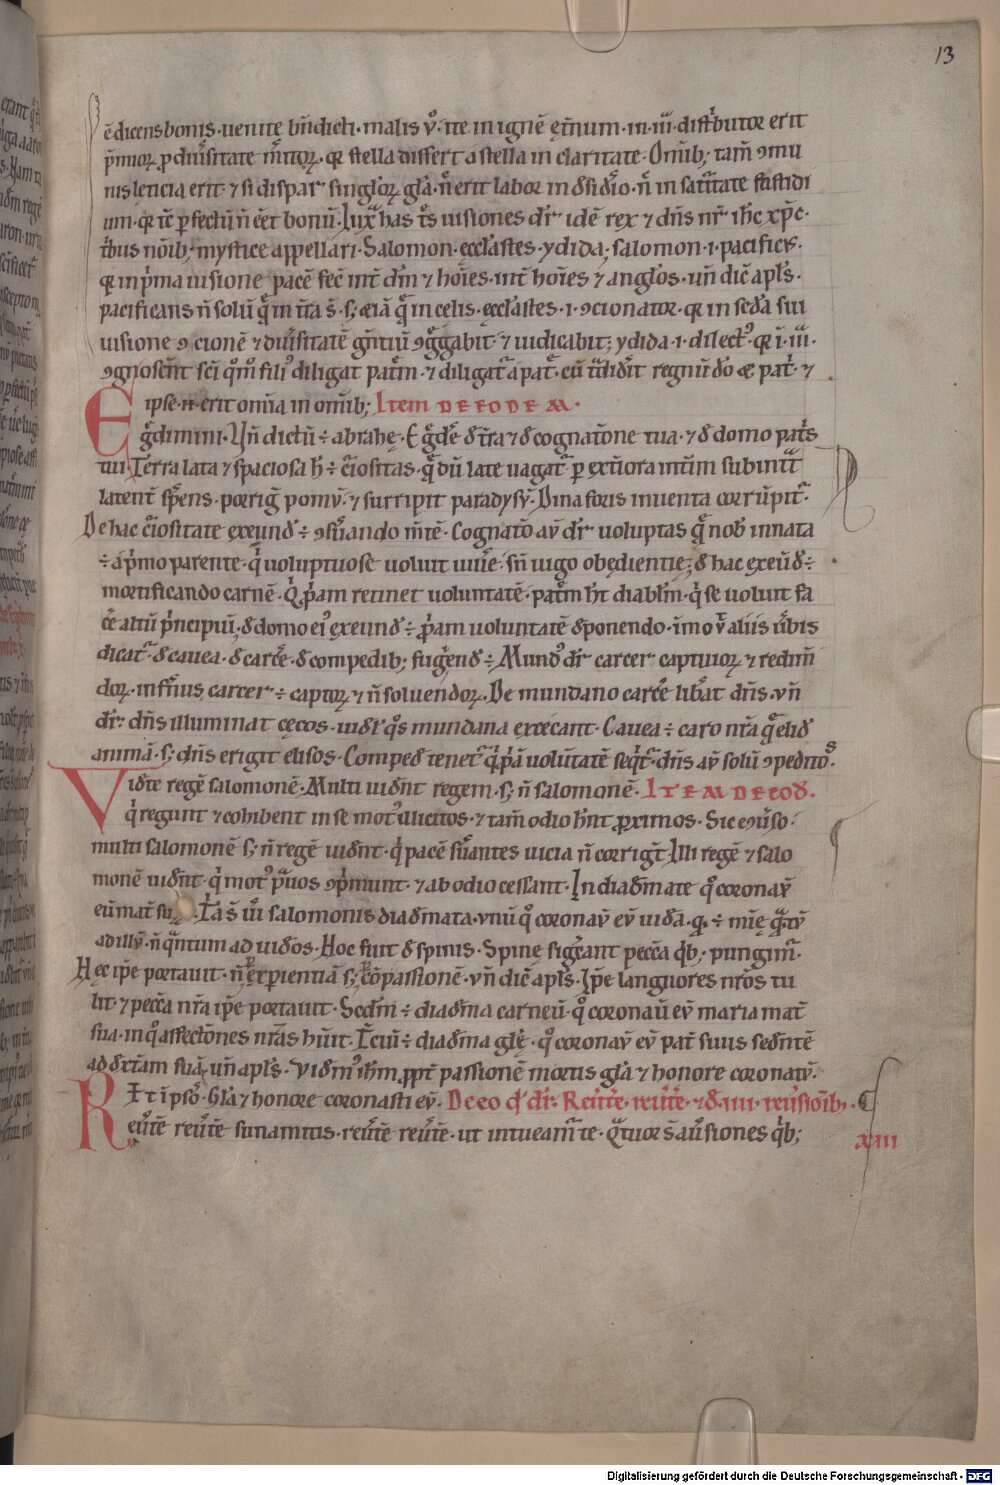 13
ē dicens bonis · uenite bn̄dicti · malis v̊ · ite in ignē ęt̄num · in · iii · distͥbutor erit
p̄mioꝝ ꝓ diuͥsitate m̄itoꝝ · qꝛ stella differt a stella in claritate · Omīb; tam̄ ꝯmu
nis leticia erit · ⁊ si dispar singloꝝ gła · n̄ erit labor in dsidio · n̄ in satͥtate fastidi
um · qꝛ
has
uisiones dr̄ idē rex ⁊ dn̄s nr̄ ih̄c xp̄c ·
tͥbus noīb; mystice appellari · Salomon · eccl̓astes · ydida; salomon · i · pacificꝰ ·
qꝛ in pͥma uisione pacē fec̄ int̄ dm̄ ⁊ hoīes · int̄ hoīes ⁊ angl̓os · un̄ dic̄ apl̓s ·
pacificans n̄ solū
in celis · eccl̓astes · i · ꝯcionator · qꝛ in
sui
uisione ꝯcionē ⁊ diuͥsitatē gn̄tiū ꝯgͣgabit · ⁊ iudicabit; ydida · i · dilectꝰ · qꝛ ī · iii ·
ꝯgnoscn̄t sc̄i qͦm̊ filiꝰ diligat patͥm · ⁊ diligatͬ a patͤ · cū tͣdidͥit regnū dō ⁊ patͥ · ⁊
ipse · n̄ erit om̄ia in om̄ib; Item DE EODEM ·
Egͣdimini · Vn̄ dictū ÷ abrahę · Egͣdē d t̄ra ⁊ d cognatōne tua · ⁊ d domo patͥs
tui · Terra lata ⁊ spaciosa h̄ ÷ cͥiositas · qͣ dū late uagatͬ p extͥiora int̄ im subintͣt
latent̄ sp̄ens · porrigͭ pomv̄ · ⁊ surripit paradysv̄ · Dina foris inuenta corrūpitͬ ·
De hac cͥiositate exeund̄ ÷ ꝯsuͣando m̄tē · Cognatō av̄ dr̄ uoluptas qͣ nob̄ innata
÷ a pͥmo parente · qͥ uoluptuose uoluit uiuͤe · sn̄ iugo obędientię; d hac exeūd ÷
mortificando carnē · Qͥ ꝓpam retinet uoluntatē · patͤm ht̄ diabl̄m · qͥ se uoluit fa
cͤe altū pͥncipiū · d domo eiꝰ exeund̄ ÷ ꝓpam uoluntatē dponendo · īmo v̄ aliis uͤbis
dicatͬ · d cauea · d carcͤe · d compedib; fugiend̄ ÷ Mundꝰ dr̄ carcer captiuoꝝ ⁊ redim̄
doꝝ · infn̄us carcer ÷ captoꝝ ⁊ n̄ soluendoꝝ · De mundano carcͤe libͤat dn̄s · vn̄
dr̄ · dn̄s illuminat cęcos · uidl̓ qͦs mundana excecant · Cauea ÷ caro nr̄a qͣ elid̄
animā · s; dn̄s erigit elisos · Comped̄ tenetͬ qͥ ꝓpͥā uolūtatē seqͥtͬ · dn̄s av̄ solū ꝯpeditoˢ ·
Vidͤte regē salomonē · Multi uidn̄t regem · s; n̄ salomonē · ITEM DE EOD̄ ·
qͥ regunt ⁊ cohibent in se motꝰ illicitos · ⁊ tam̄ odio hn̄t ꝓximos · Sic eͥuͤso ·
multi salomonē s; n̄ regē uidn̄t · qͥ pacē sͤuantes uicia n̄ corrigͭ Illi regē ⁊ salo
monē uidn̄t · qͥ motꝰ pͣuos ꝯpͥmunt · ⁊ ab odio cessant · In diadm̄ate qͦ coronav̄
eū mat̄ su · Tͥa s̄ iii salomonis diadm̄ata · vnū qͦ coronav̄ ev̄
ad illv̄ · n̄ qͣntum ad iudͤos · Hoc fuit d spinis · Spinę sigͥant pecc̄a qͥb; pungimͬ ·
Hęc ip̄e portauit · n̄ ꝑ exꝑientiā s; ꝑ cōpassionē · vn̄ dic̄ apl̓s · Ip̄e languores nr̄os tu
lit · ⁊ pecc̄a nr̄a ip̄e portauit · Secdm̄ ÷ diadm̄a carneū · qͦ coronau̅ ev̄ maria mat̄
sua · in qͦ affectōnes nr̄as hūit · Tͥciū ÷ diadm̄a glę̄ · qͦ coronav̄ ev̄ pat̄ suus sedn̄tē
ad dxt̄am suā · un̄ apl̓s · Vidm̄ꝰ ih̄m ꝓpt̄ passionē mortis gła ⁊ honore coronatv̄ ·
It̄ ipsͦ · Gła ⁊ honore coronasti ev̄ · De eo qd̓ dr̄ · Reuͤtͤe · reuͤtͤe · ⁊ d · iiii · reuͤsioīb; ·
Reuͤtͤe reuͤtͤe sunamitis · reuͤtͤe reuͤtͤe · ut intueamͬ te · Qͣtuor s̄ auͤsiones qͥb;
xiii
Digitalisierung gefördert durch die Deutsche Forschungsgemeinschaft - DFG